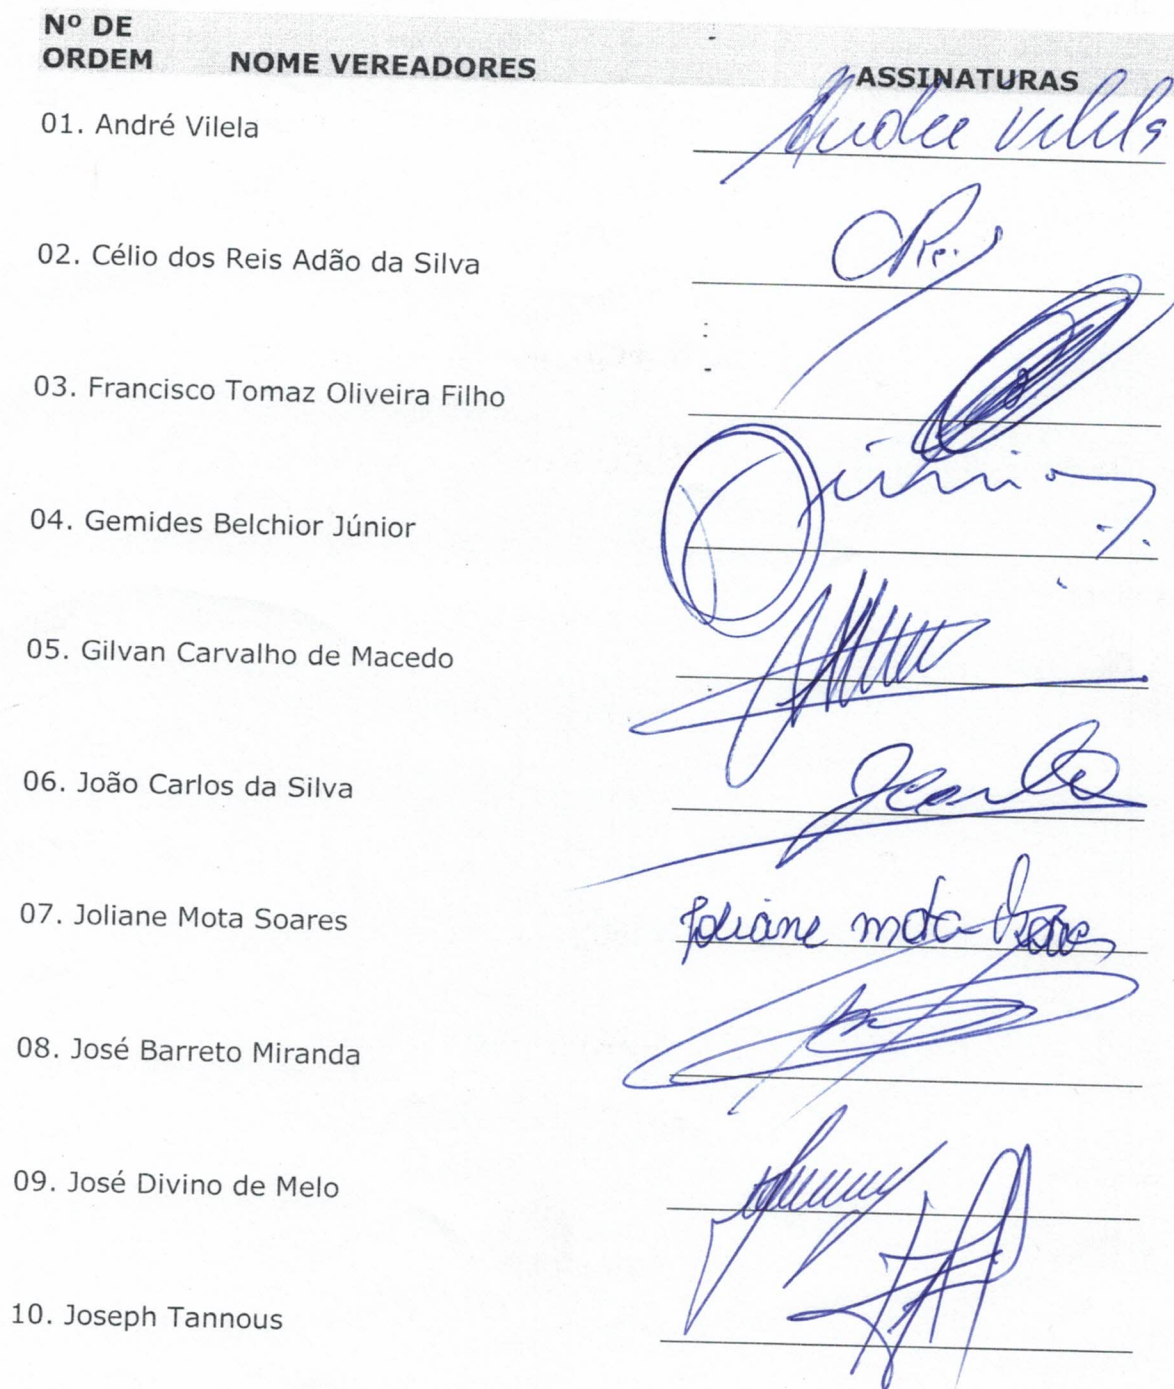 Nº DE
ORDEM NOME VEREADORES ASSINATURAS
01. André Vilela Andre Vilela
02. Célio dos Reis Adão da Silva
03. Francisco Tomaz Oliveira Filho
04. Gemides Belchior Júnior Júnior
05. Gilvan Carvalho de Macedo
06. João Carlos da Silva
07. Joliane Mota Soares Joliane mota Soares
08. José Barreto Miranda
09. José Divino de Melo
10. Joseph Tannous